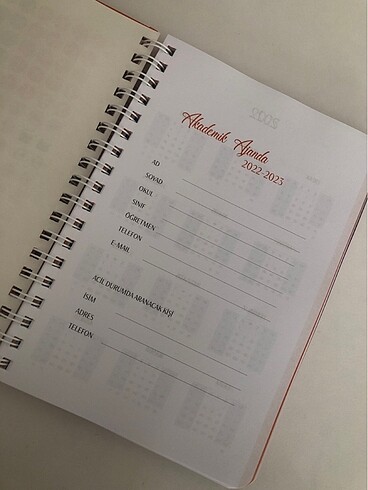 Akademik Ajanda
2022-2023
AD
SOYAD
OKUL
SINIF
ÖĞRETMEN
TELEFON
E-MAIL
ACİL DURUMDA ARANACAK KİŞİ
İSİM
ADRES
TELEFON